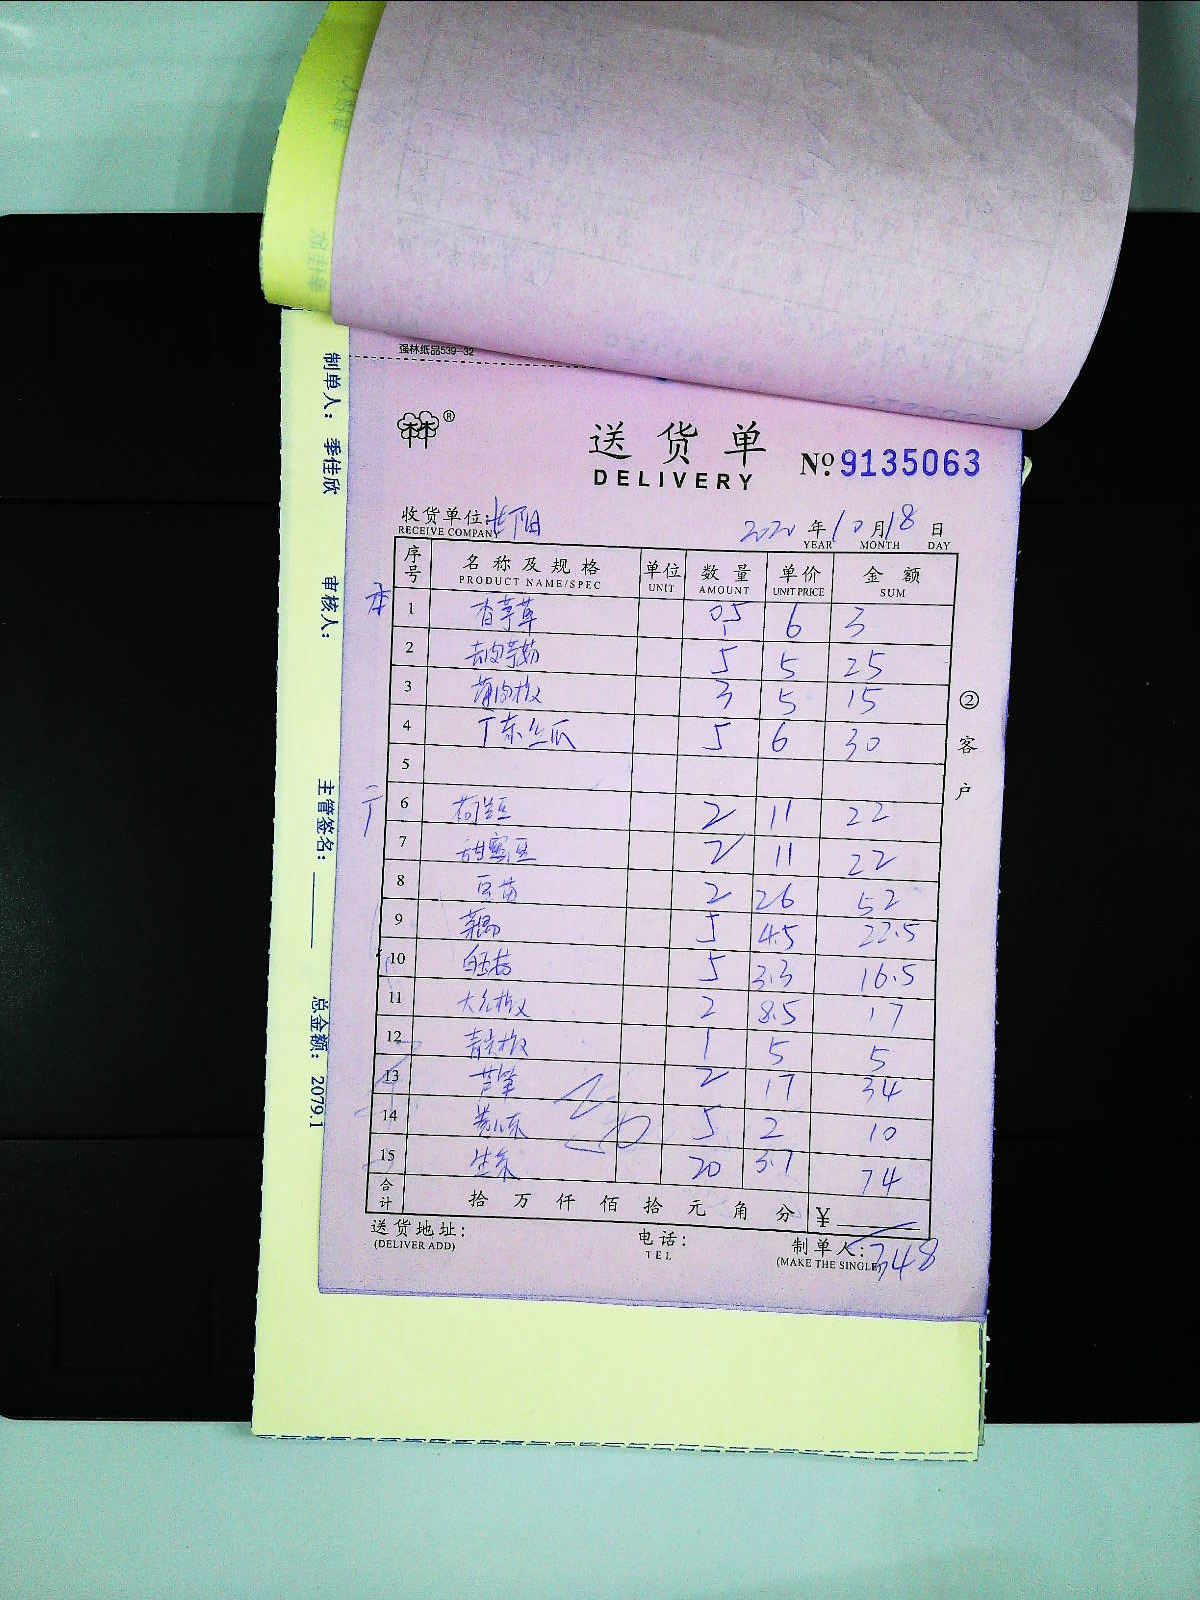 强林纸品539-32
送货单
DELIVERY
№ 9135063
收货单位:
RECEIVE COMPANY
2020 年 10 月 18 日
YEAR MONTH DAY
序号 名称及规格 单位 数量 单价 金额
PRODUCT NAME/SPEC UNIT AMOUNT UNIT PRICE SUM
1 香茅草 0.5 6 3
2 5 5 25
3 薄肉椒 3 5 15
4 丁东丝瓜 5 6 30
5
6 荷兰豆 2 11 22
7 甜蜜豆 2 11 22
8 豆苗 2 26 52
9 5 4.5 22.5
10 5 3.3 16.5
11 2 8.5 17
12 青尖椒 1 5 5
13 芦笋 2 17 34
14 5 2 10
15 生菜 20 3.7 74
合计 拾 万 仟 佰 拾 元 角 分 ¥
348
送货地址:
(DELIVER ADD)
电话:
TEL
制单人:
(MAKE THE SINGLE)
②客户
制单人: 季佳欣 审核人: 主管签名: 总金额: 2079.1